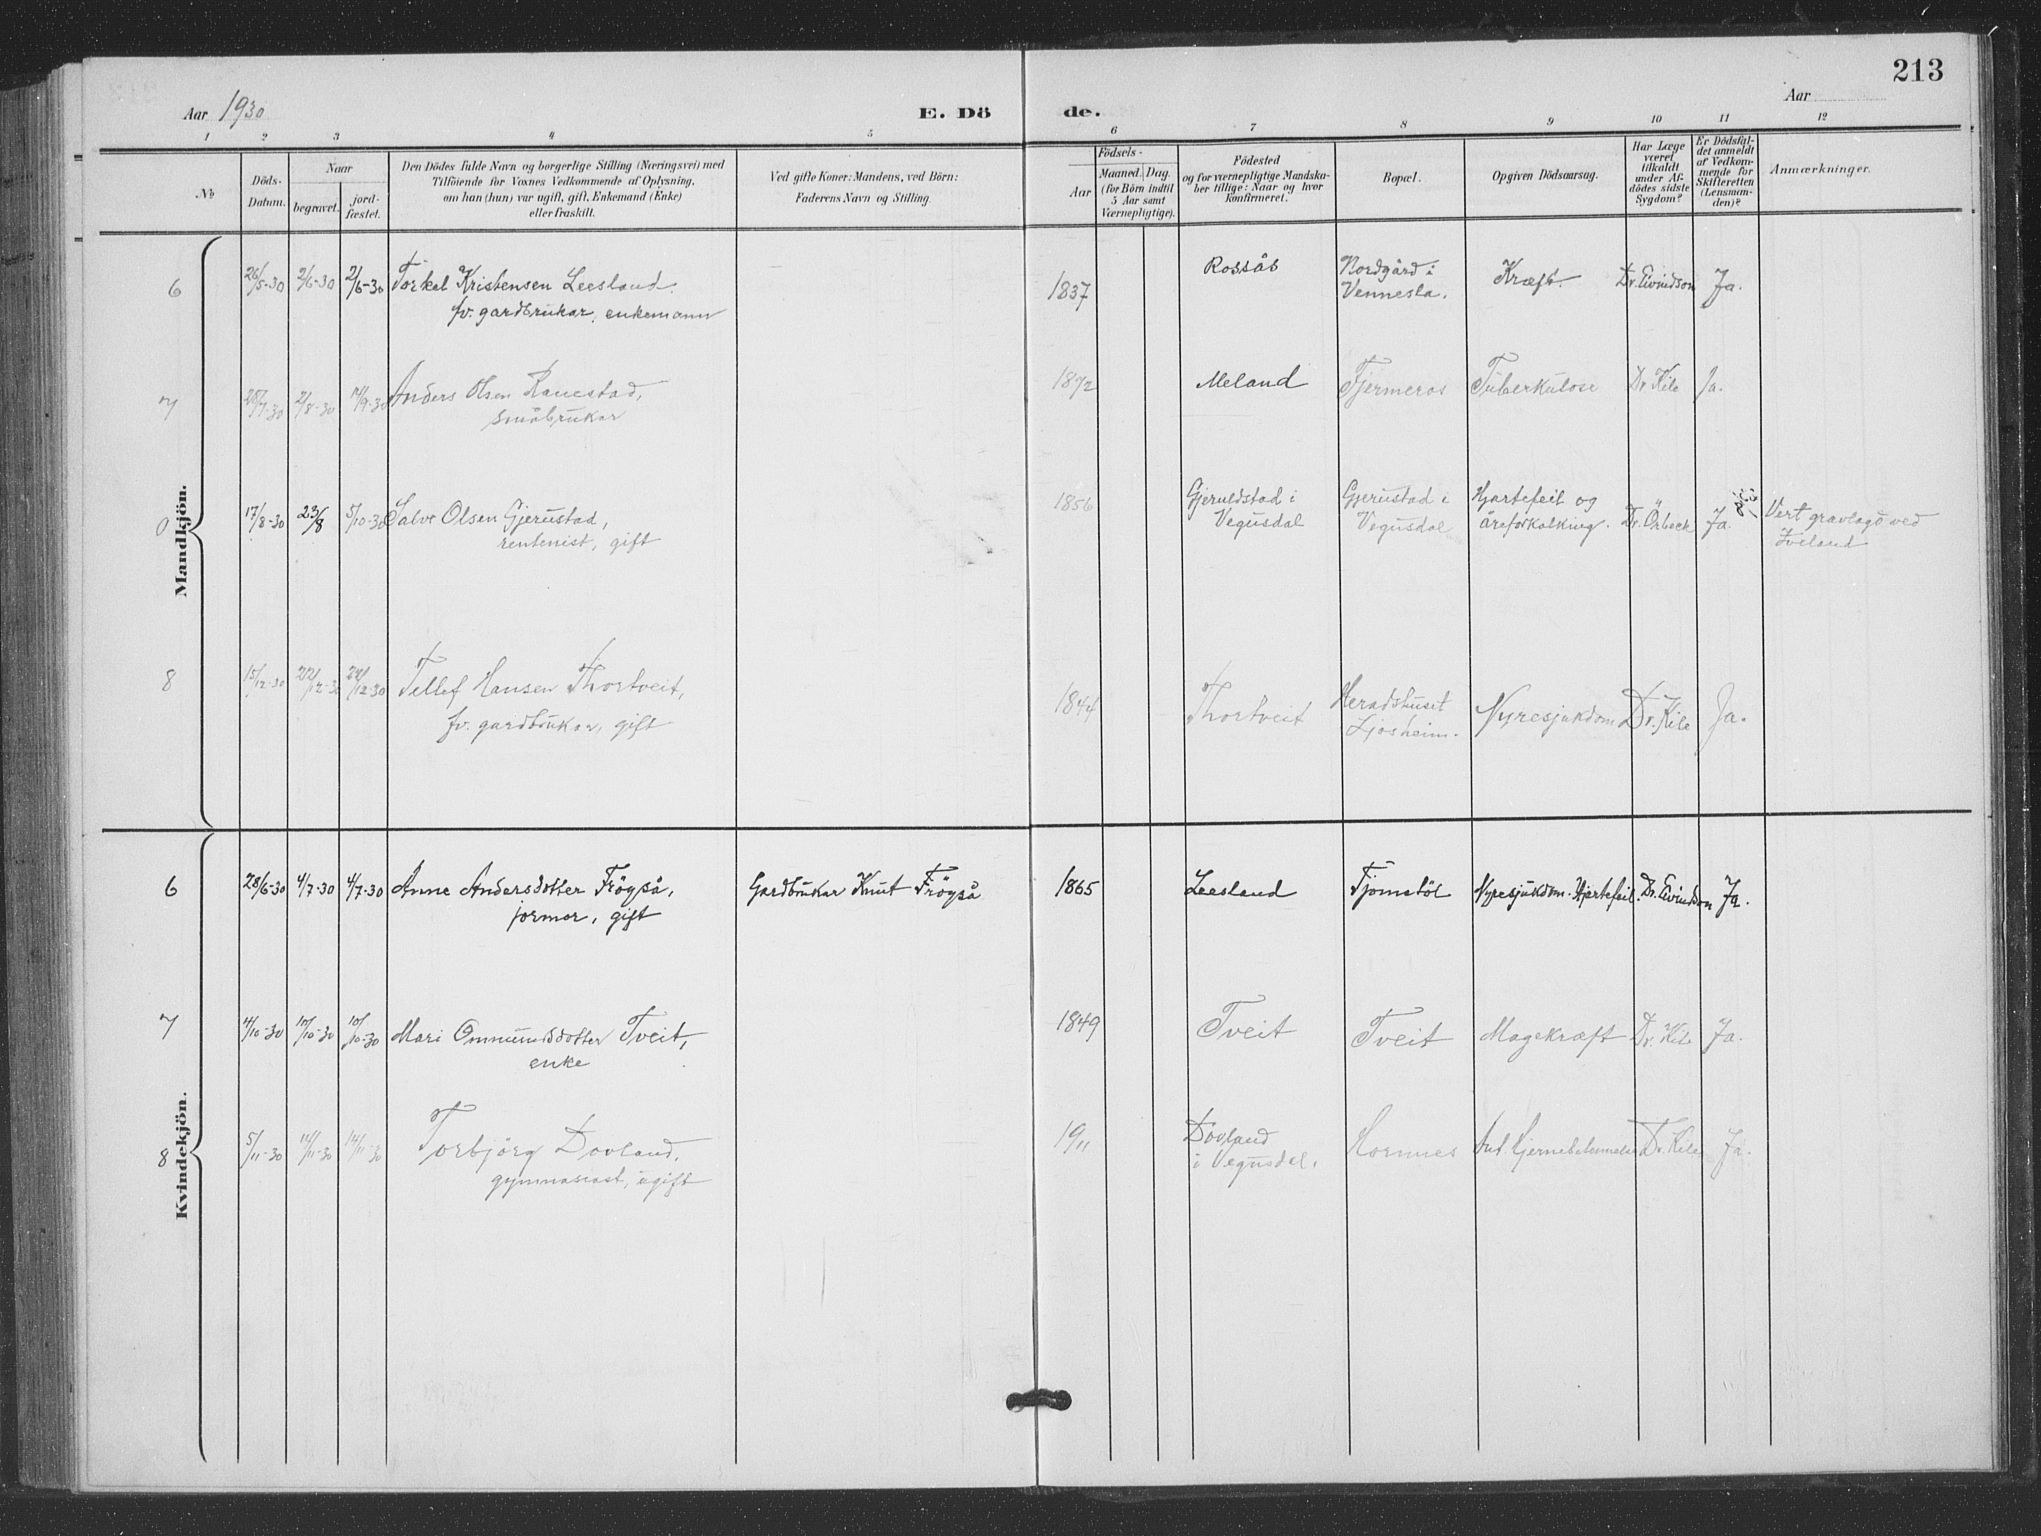 213
Aar 1930
E. Dö
de.
Aar
1 2 3 4 5 6 7 8 9 10 11 12
No
Döds-
Datum.
Naar
begravet.
jord-
fæstet.
Den Dödes fulde Navn og borgerlige Stilling (Næringsvei) med
Tilföiende for Voxnes Vedkommende af Oplysning,
om han (hun) var ugift, gift, Enkemand (Enke)
eller fraskilt.
Ved gifte Koner: Mandens, ved Börn:
Faderens Navn og Stilling.
Födsels-
Aar
Maaned. Dag.
(for Börn indtil
5 Aar samt
Værnepligtige).
Födested
og for værnepligtige Mandska-
ber tillige: Naar og hvor
konfirmeret.
Bopæl.
Opgiven Dödsaarsag.
Har Læge
været
tilkaldt
under Af-
dödes sidste
Sygdom?
Er Dödsfal-
det anmeldt
af Vedkom-
mende for
Skifteretten
(Lensman-
den)?
Anmærkninger.
Mandkjön.
6 26/5-30 2/6-30 2/6-30 Torkel Kristensen Leesland. 1837 Rossås Nordgård i Kræft. Dr. Eivindson Ja.
fv. gardbrukar, enkemann Vennesla.
7 28/7-30 2/8-30 14/9-30 Anders Olsen Ranestad, 1872 Meland Fjermeros Tuberkulose Dr. Kile Ja.
småbrukar
0 17/8-30 23/8 5/10-30 Salve Olsen Gjerustad, 1856 Gjeruldstad i Gjerustad i Hjartefeil og Dr. Örbeck Ja. Vert gravlagd ved
rentenist, gift Vegusdal Vegusdal åreforkalking. Iveland
8 15/12-30 22/12-30 22/12-30 Tellef Hansen Thortveit, 1844 Thortveit Heradshuset Nyresjukdom Dr. Kile Ja.
fv. gardbrukar, gift Ljosheim.
Kvindekjön.
6 28/6-30 4/7-30 4/7-30 Anne Andersdotter Frögså, Gardbrukar Knut Frögså 1865 Leesland Fjomstöl Nyresjukdom. Hjertefeil. Dr. Eivindson Ja.
jormor, gift
7 4/10-30 10/10-30 10/10-30 Mari Ommundsdotter Tveit, 1849 Tveit Tveit Magekræft Dr. Kile Ja.
enke
8 5/11-30 14/11-30 14/11-30 Torbjörg Dovland, 1911 Dovland Hornnes Dr. Kile Ja.
gymnasiast, ugift i Vegusdal.